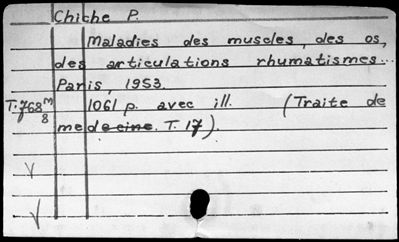 Chiche P.
Maladies des muscles, des os,
des articulations rhumatismes...
Paris, 1953.
T.768 m/8 1061 p. avec ill. (Traite de
medecine. T. 17).
V
V